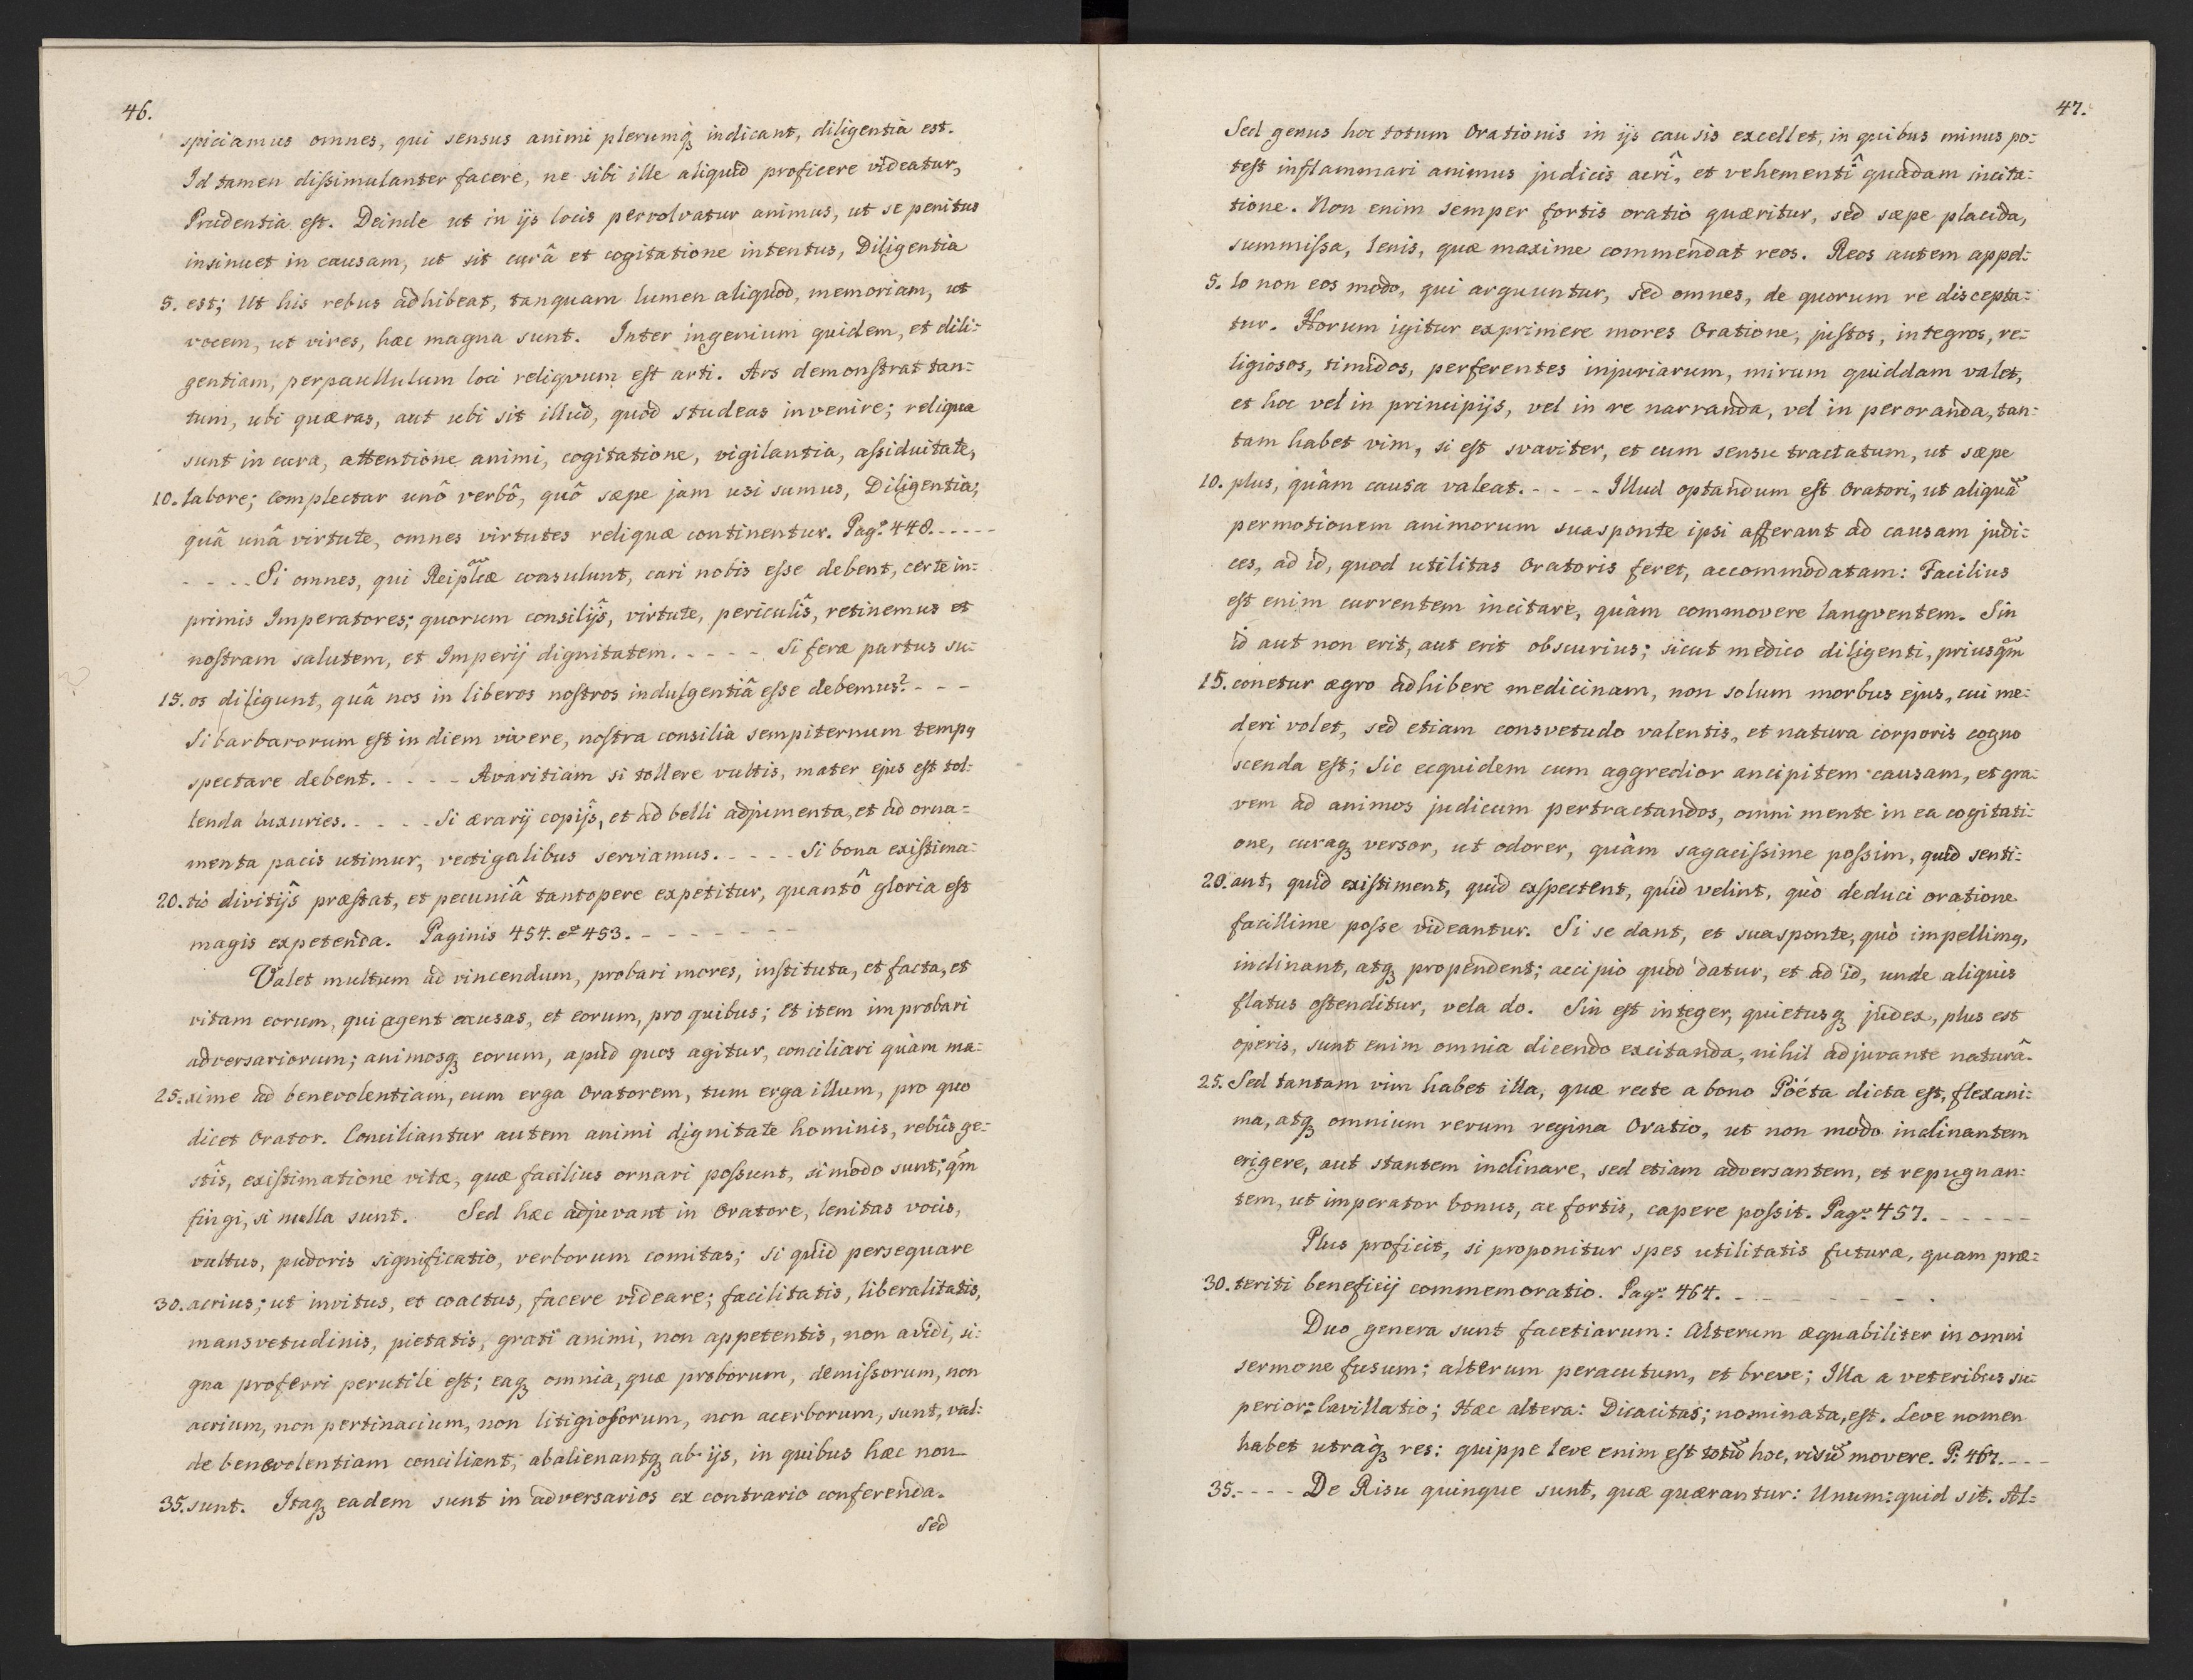 46.
spiciamus omnes, qui sensus animi plerumq; indicant, diligentia est.
Id tamen dissimulanter facere, ne sibi ille aliquid proficere videatur,
Prudentia est. Deinde ut in ijs locis pervolvatur animus, ut se penitus
insinuet in causam, ut sit curâ et cogitatione intentus, Diligentia
5. est; Ut his rebus adhibeat, tanquam lumen aliquod, memoriam, ut
vocem, ut vires, hæc magna sunt. Inter ingenium quidem, et dili=
gentiam, perpaullulum loci reliqvum est arti. Ars demonstrat tan=
tum, ubi quæras, aut ubi sit illud, quod studeas invenire; reliqua
sunt in cura, attentione animi, cogitatione, vigilantia, assiduitate,
10. labore; complectar unô verbô, quô sæpe jam usi sumus, Diligentia;
quâ unâ virtute, omnes virtutes reliquæ continentur. Pag.ª 448. - - - - -
- - - - Si omnes, qui Reiplcæ consulunt, cari nobis esse debent, certe in=
primis Imperatores; quorum consilijs̑, virtute, periculis̑, retinemus et
nostram salutem, et Imperij dignitatem. - - - - Si feræ partus su=
15. os diligunt, quâ nos in liberos nostros indulgentiâ esse debemus? - - -
Si barbarorum est in diem vivere, nostra consilia sempiternum tempꝰ
spectare debent. - - - - Avaritiam si tollere vultis, mater ejus est tol=
lenda luxuries. - - - - Si ærarij copijs̑, et ad belli adjumenta, et ad orna=
menta pacis utimur, vectigalibus serviamus. - - - - Si bona existima=
20. tio divitijs̑ præstat, et pecuniâ tantopere expetitur, quantô gloria est
magis expetenda. Paginis 454. eº 453. - - - - - - -
Valet multum ad vincendum, probari mores, instituta, et facta, et
vitam eorum, qui agent causas, et eorum, pro quibus; et item improbari
adversariorum; animosq; eorum, apud quos agitur, conciliari quàm ma=
25. xime ad benevolentiam, cum erga Oratorem, tum erga illum, pro quo
dicet Orator. Conciliantur autem animi dignitate hominis, rebûs ge=
stîs, existimatione vitæ, quæ facilius ornari possunt, si modo sunt; q̃m
fingi, si nulla sunt. Sed hæc adjuvant in Oratore, lenitas vocis,
vultus, pudoris significatio, verborum comitas; si quid persequare
30. acrius; ut invitus, et coactus, facere videare; facilitatis, liberalitatis,
mansvetudinis, pietatis, grati animi, non appetentis, non avidi, si=
gna proferri perutile est; eaq; omnia, quæ proborum, demissorum, non
acrium, non pertinacium, non litigiosorum, non acerborum, sunt, val=
de benevolentiam conciliant, abalienantq; ab ijs, in quibus hæc non
35. sunt. Itaq; eadem sunt in adversarios ex contrario conferenda.
Sed
47.
Sed genus hoc totum Orationis in ijs causis excellet, in quibus minus po=
test inflammari animus judicis acrî, et vehementî quadam incita=
tione. Non enim semper fortis oratio quæritur, sed sæpe placida,
summissa, lenis, quæ maxime commendat reos. Reos autem appel=
5. lo non eos modo, qui arguuntur, sed omnes, de quorum re discepta=
tur. Horum igitur exprimere mores Oratione, justos, integros, re=
ligiosos, timidos, perferentes injuriarum, mirum quiddam valet,
et hoc vel in principijs, vel in re narranda, vel in peroranda, tan=
tam habet vim, si est svaviter, et cum sensu tractatum, ut sæpe
10. plus, quàm causa valeat. - - - - Illud optandum est Oratori, ut aliquã
permotionem animorum suasponte ipsi afferant ad causam judi=
ces, ad id, quod utilitas Oratoris feret, accommodatam: Facilius
est enim currentem incitare, quàm commovere langventem. Sin
id aut non erit, aut erit obscurius; sicut medico diligenti, priusq̃m
15. conetur ægro adhibere medicinam, non solum morbus ejus, cui me=
deri volet, sed etiam consvetudo valentis, et natura corporis cogno
scenda est; Sic ecquidem cum aggredior ancipitem causam, et gra=
vem ad animos judicum pertractandos, omni mente in ea cogitati=
one, curaq; versor, ut odorer, quàm sagacissime possim, quid senti=
20. ant, quid existiment, quid exspectent, quid velint, quò deduci oratione
facillime posse videantur. Si se dant, et suasponte, quò impellimꝰ,
inclinant, atq; propendent; accipio quod datur, et ad id, unde aliquis
flatus ostenditur, vela do. Sin est integer, quietusq; judex, plus est
operis, sunt enim omnia dicendo excitanda, nihil adjuvante naturâ.
25. Sed tantam vim habet illa, quæ recte a bono Pöéta dicta est, flexani=
ma, atq; omnium rerum regina Oratio, ut non modo inclinantem
erigere, aut stantem inclinare, sed etiam adversantem, et repugnan=
tem, ut imperator bonus, ac fortis, capere possit. Pag.ª 457. - - - - -
Plus proficit, si proponitur spes utilitatis futuræ, quam præ=
30. teriti beneficij commemoratio. Pag.ª 464. - - - - - - - .
Duo genera sunt facetiarum: Alterum æquabiliter in omni
sermone fusum; alterum peracutum, et breve; Illa a veteribus su=
perior: Cavillatio; Hæc altera: Dicacitas; nominata, est. Leve nomen
habet utraq; res: quippe leve enim est totũ hoc, risũ movere. P: 467. - - -
35. - - - - De Risu quinque sunt, quæ quærantur: Unum: quid sit. Al=